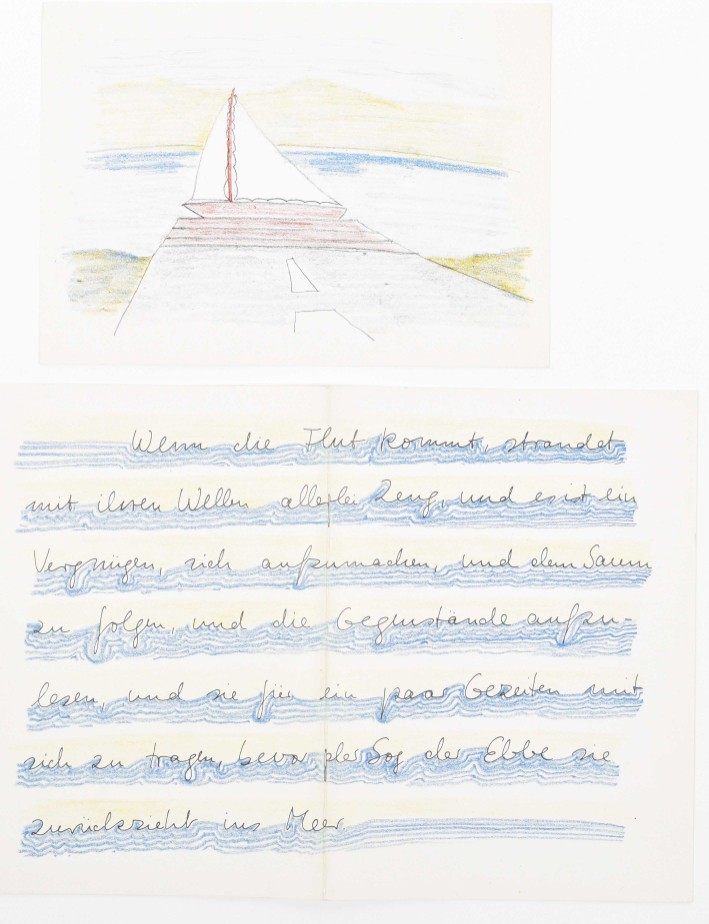 Wenn die Flut kommt, strandet
mit ihren Wellen allerlei Zeug, und es ist ein
Vergnügen, sich aufzumachen, und dem Saum
zu folgen, und die Gegenstände aufzu-
lesen, und sie für ein paar Gezeiten mit
sich zu tragen, bevor der Sog der Ebbe sie
zurückzieht ins Meer